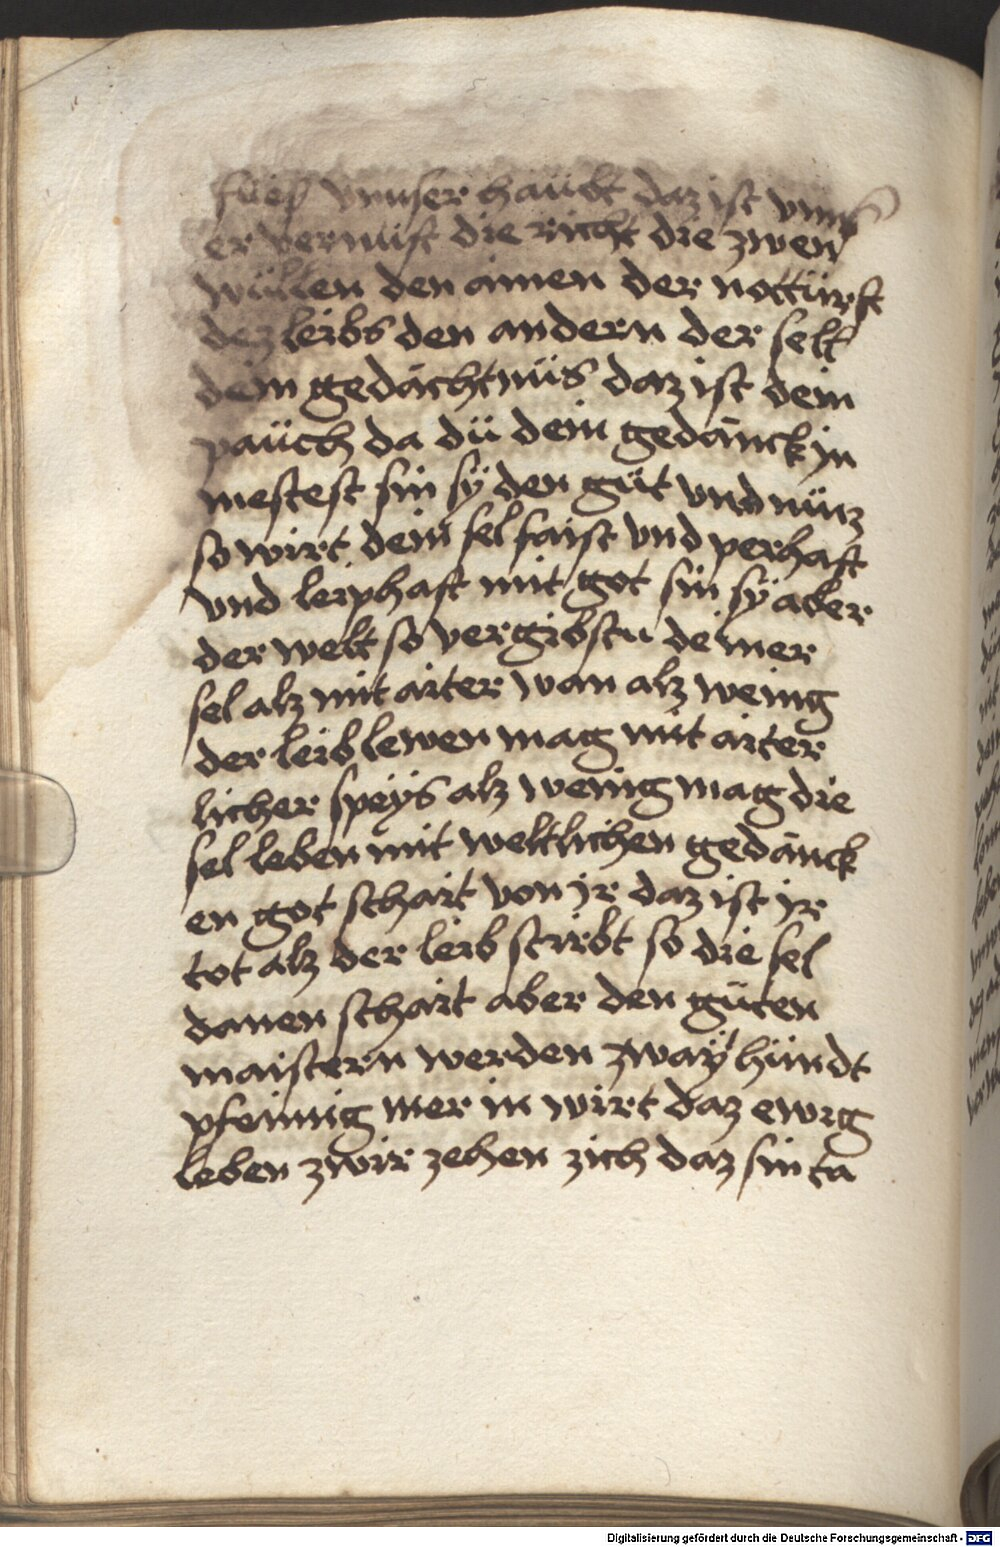 füeß vnnser haübt daz ist vnns
er vernuͤft die richt die zwen
wüllen den ainen der nottürft
dez leibs den andern der sell
dein gedächtnüs daz ist dein
paüch da dü dein gedänck jn
mestest sin sÿ den güt vnd nütz
so wirt dein sel faist vnd perhaft
vnd leiphaft mit got sin sÿ aber
der welt so vergibstu deiner
sel alz mit aiter wan alz wenig
der leib lewen mag mit aiter
licher speÿs alz wenig mag die
sel leben mit weltlichen gedänck
en got schait von jr daz ist jr
tot alz der leib stirbt so die sel
danen schait aber den güten
maistern werden zwaÿ hündt
pfennig mer in wirt daz ewig
leben zwir zehen zich daz sin ta
Digitalisierung gefördert durch die Deutsche Forschungsgemeinschaft - DFG